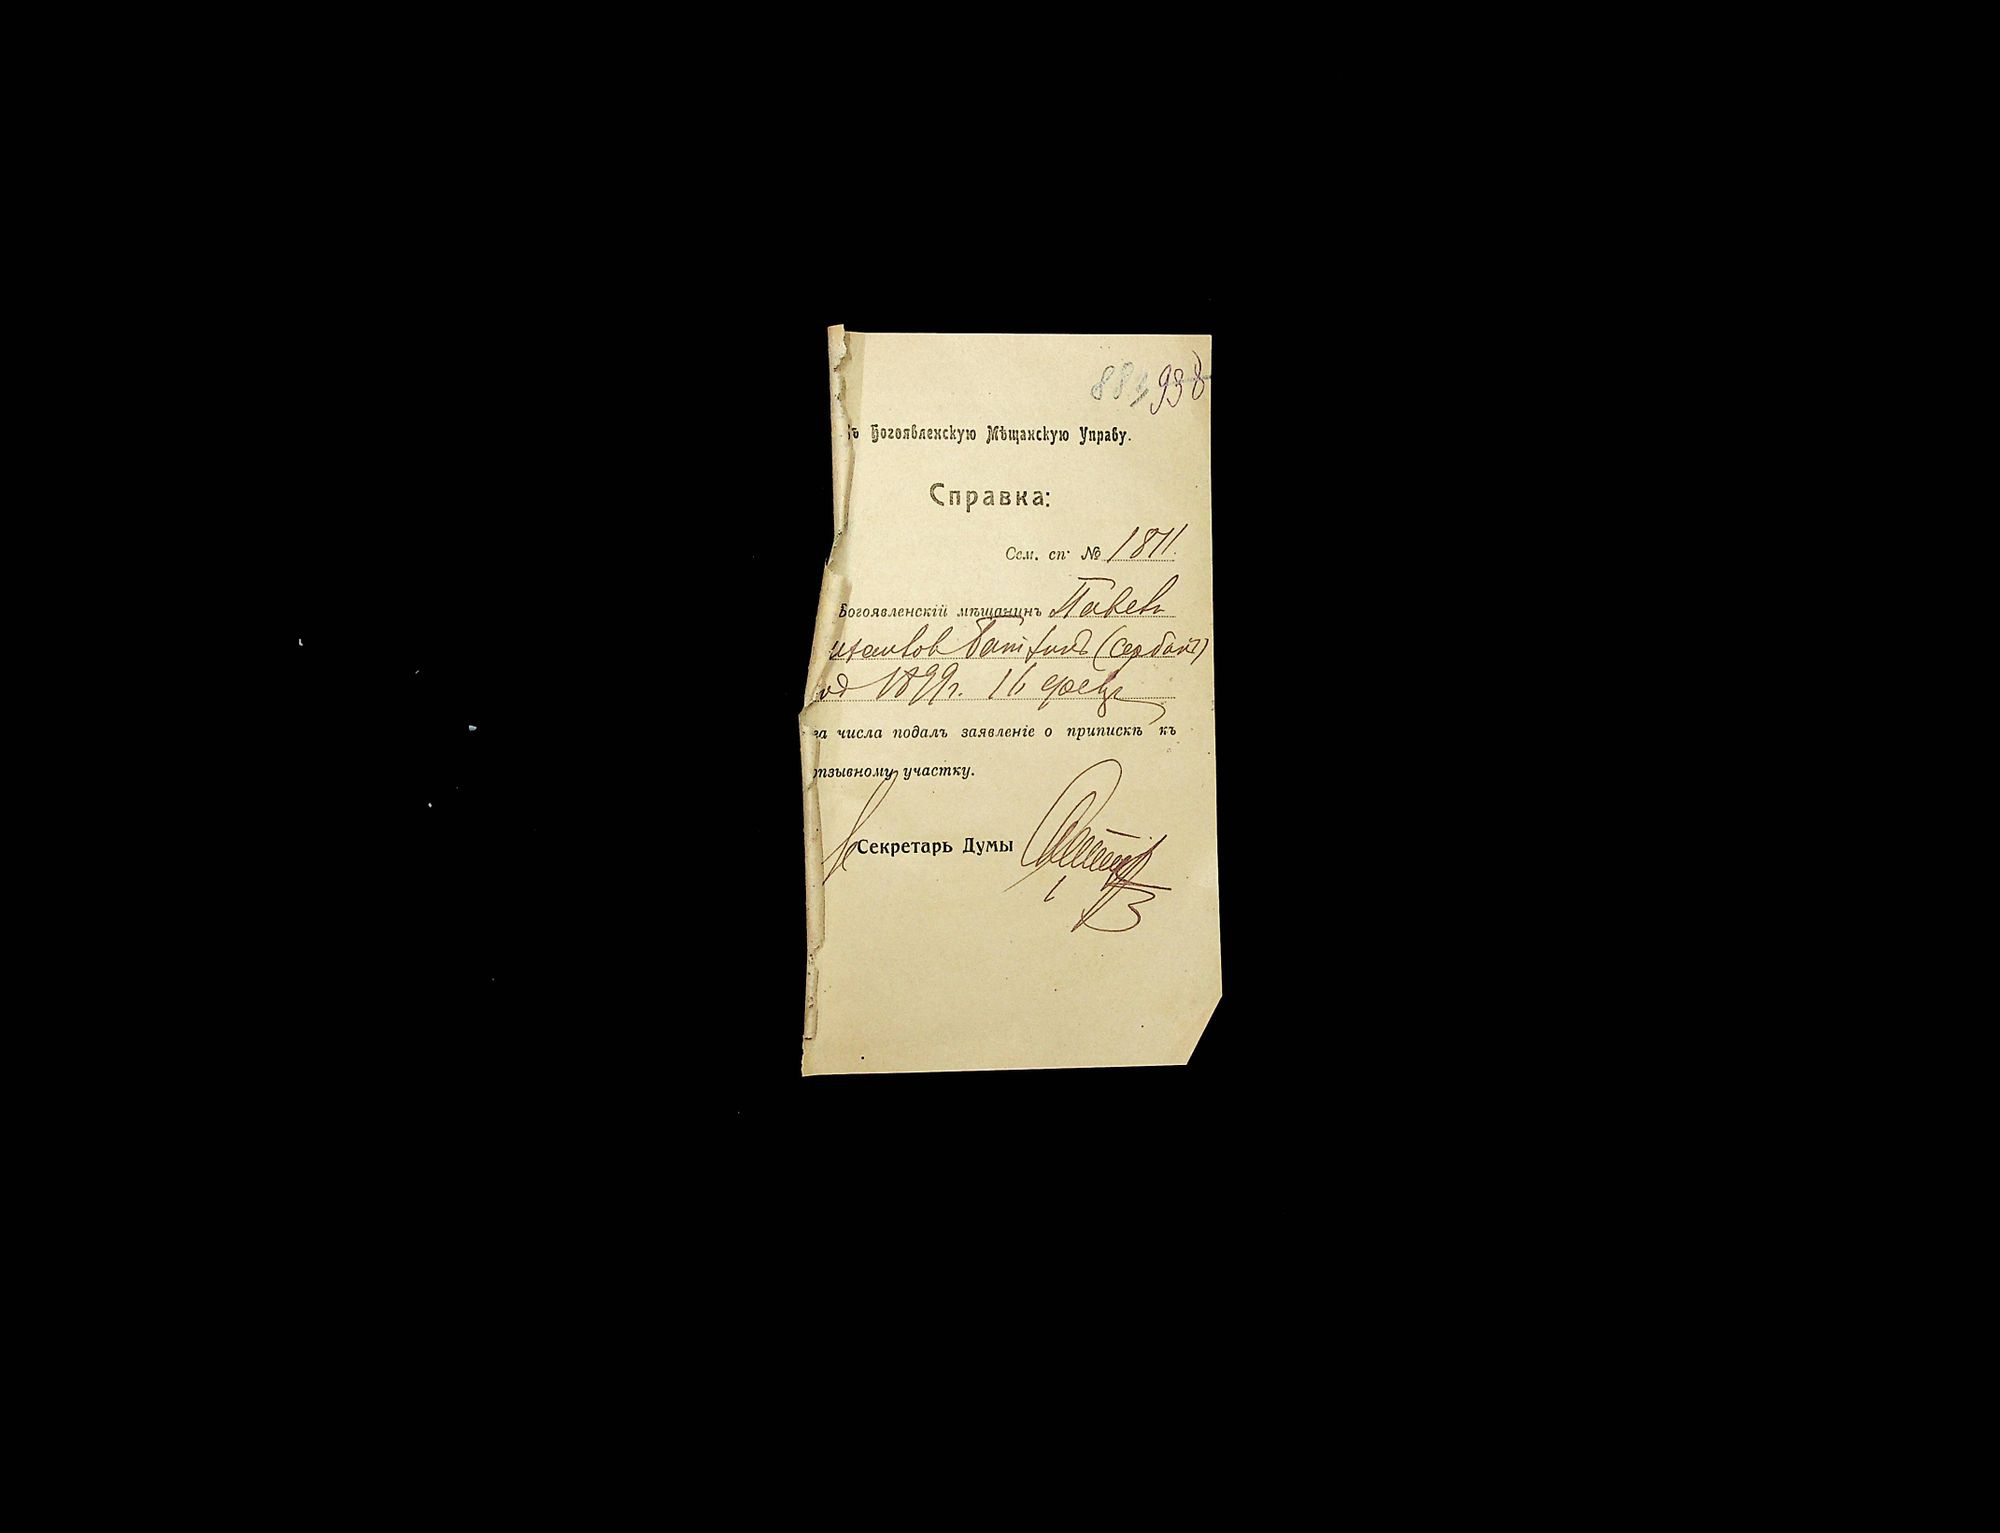 884 938
ъ Богоявленскую Мѣщанскую Управу.
Справка:
Сем. сп. № 1811.
Богоявленскій мѣщанинъ Павелъ
(Сербанъ)
род 1899г. 16 февр
га числа подалъ заявленіе о припискѣ къ
отзывному участку.
Секретарь Думы